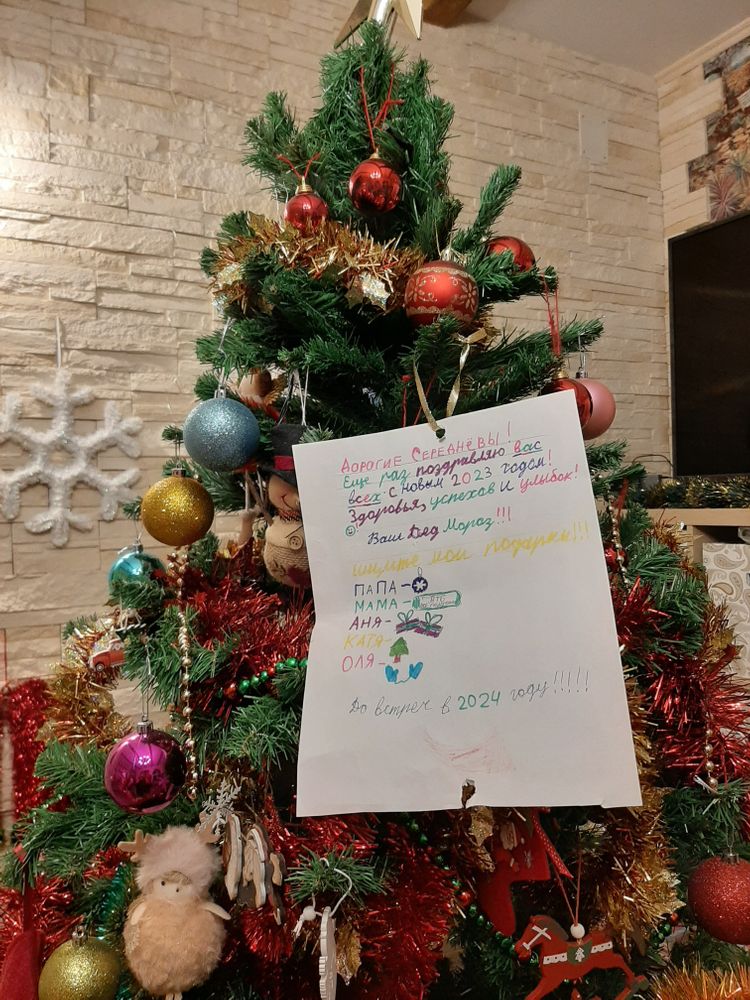 Дорогие Середнёвы!
Еще раз поздравляю вас
всех с новым 2023 годом!
Здоровья, успехов и улыбок!
Ваш Дед Мороз!!!
ищите мои подарки!!!
ПАПА -
МАМА -
АНЯ -
КАТЯ -
ОЛЯ -
До встреч в 2024 году!!!!!